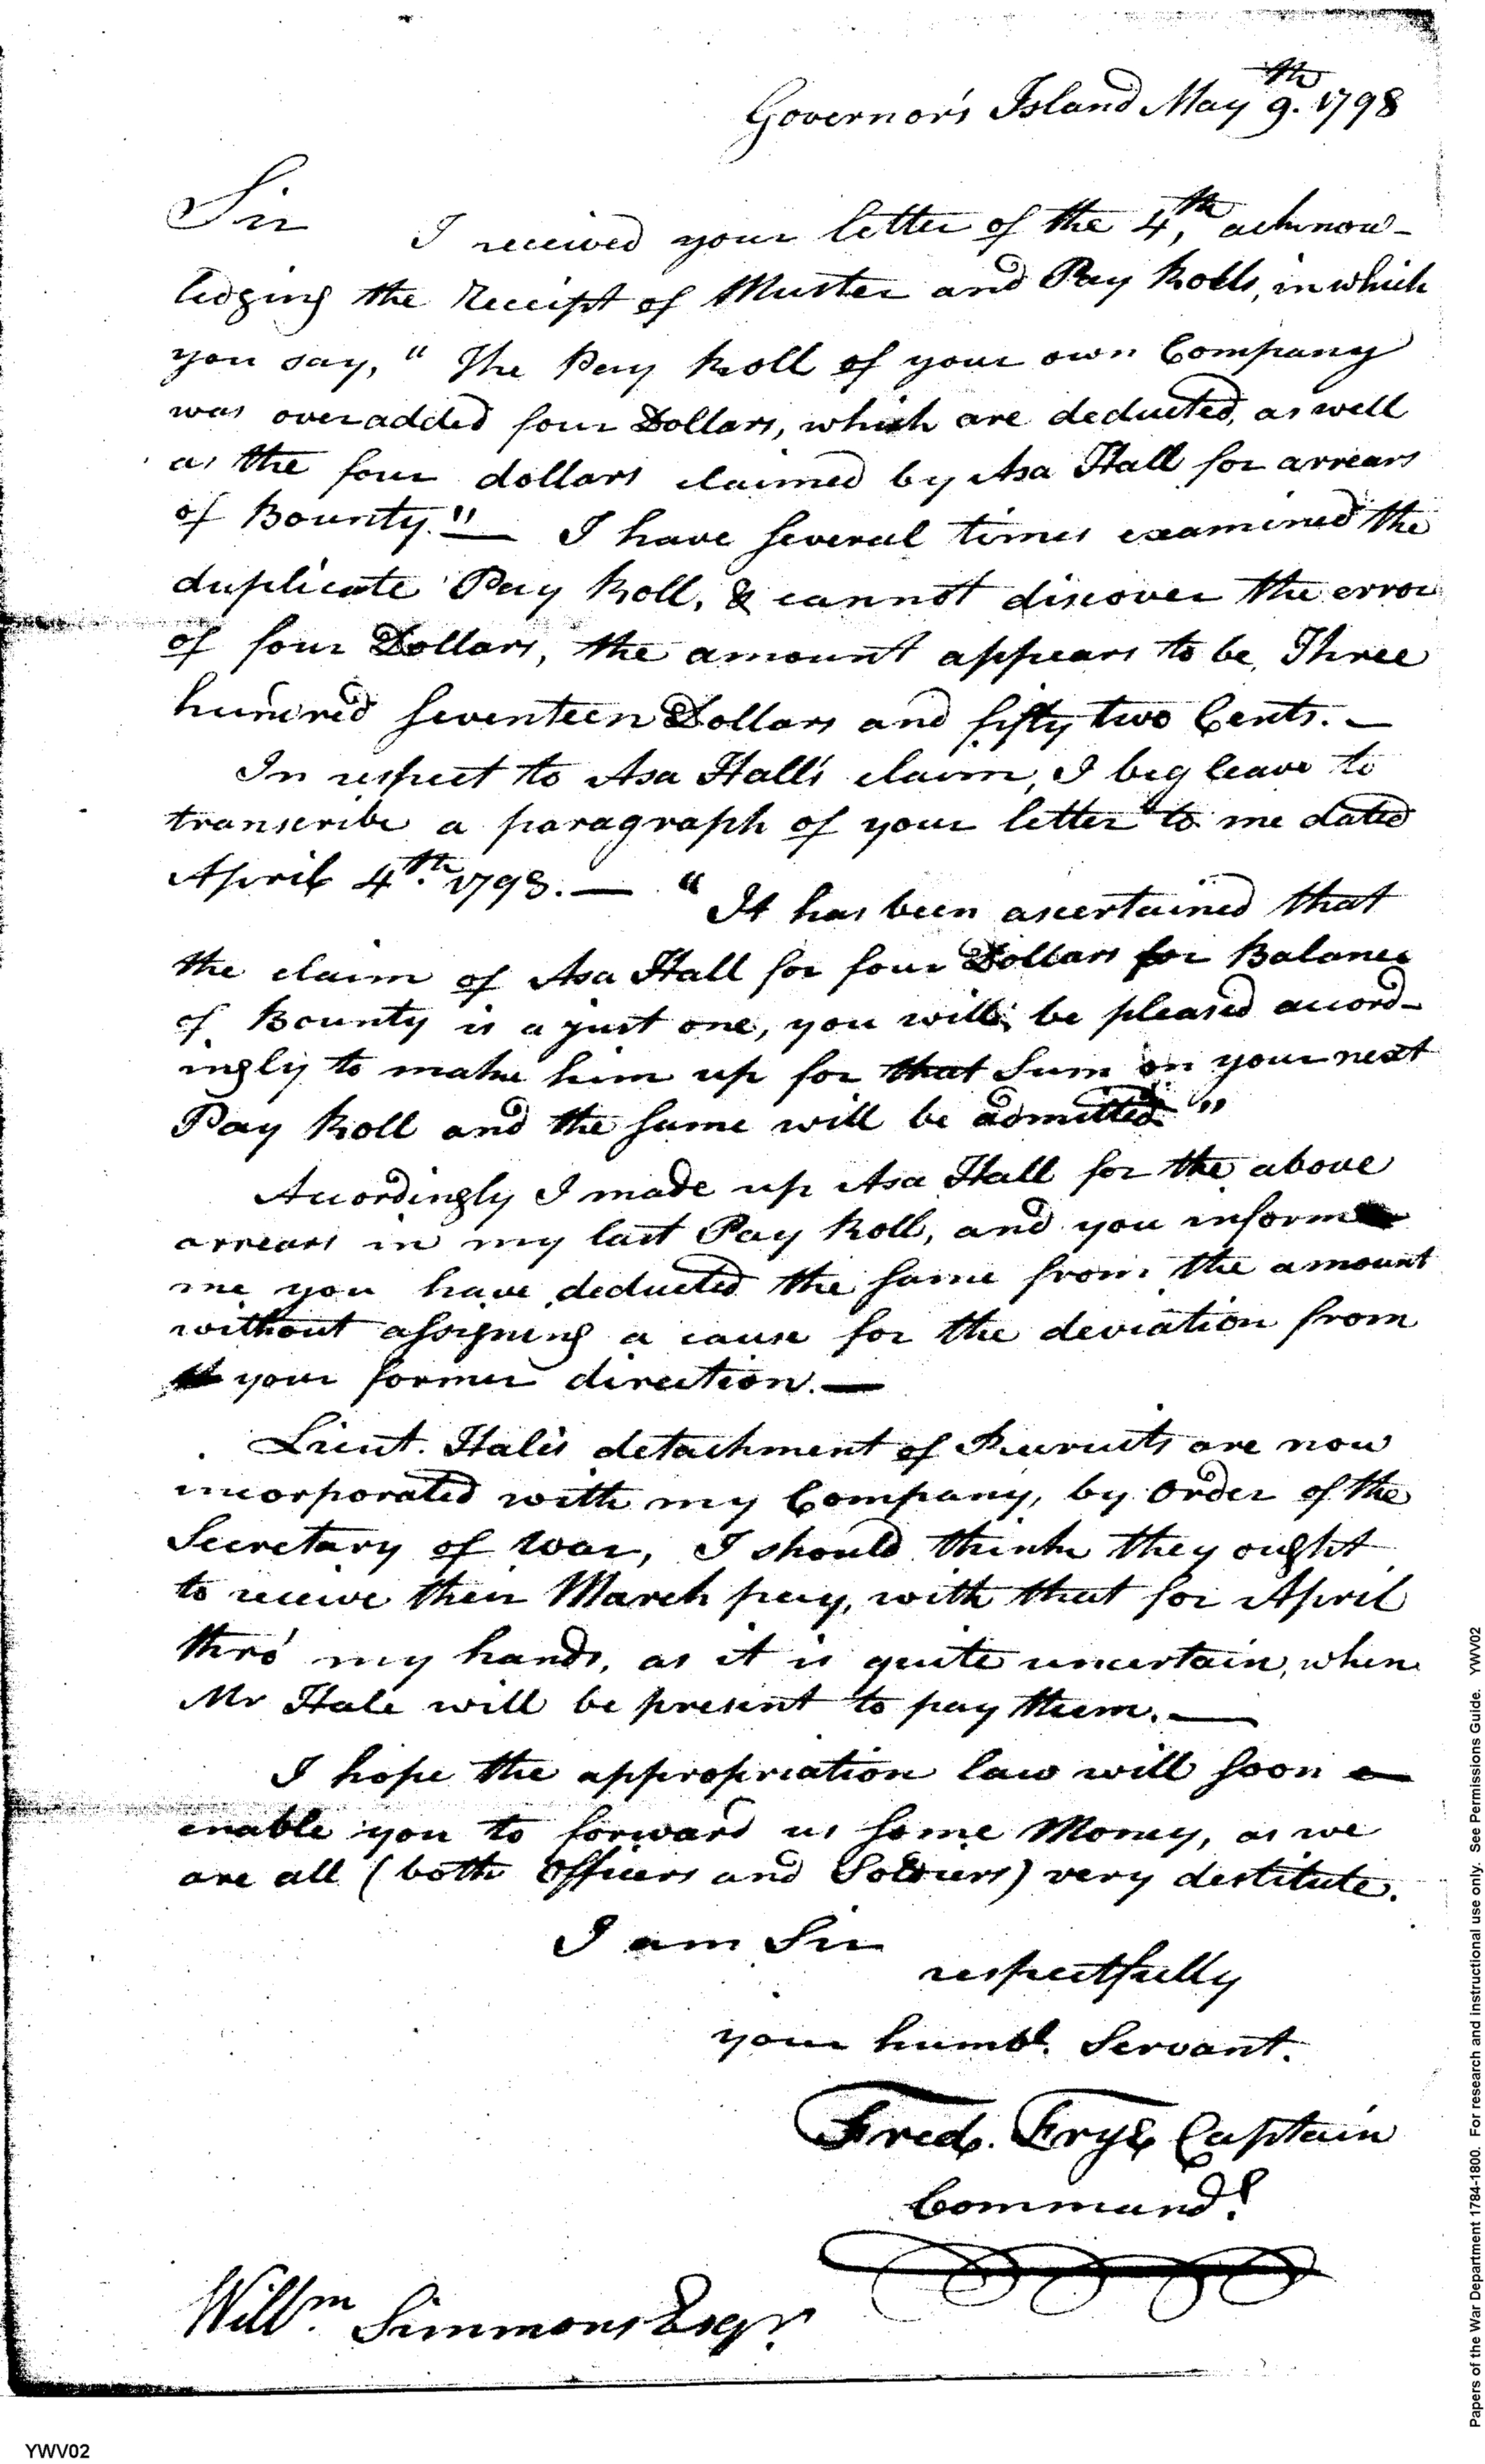 Governor's Island May 9th. 1798
Sir I received your letter of the 4th, acknow-
ledging the Receipt of Muster and Pay Rolls, in which
you say, "The Pay Roll of your own Company
was overadded four Dollars, which are deducted, as well
as the four dollars claimed by Asa Hall for arrears
of Bounty."— I have several times examined the
duplicate Pay Roll, & cannot discover the error
of four Dollars, the amount appears to be, Three
hundred seventeen Dollars and fifty two Cents.—
In respect to Asa Hall's claim, I beg leave to
transcribe a paragraph of your letter to me dated
April 4th. 1798.— "It has been ascertained that
the claim of Asa Hall for four Dollars for Balance
of Bounty is a just one, you will be pleased accord-
ingly to make him up for that Sum on your next
Pay Roll and the same will be admitted"
Accordingly I made up Asa Hall for the above
arrears in my last Pay Roll, and you inform
me you have deducted the same from the amount
without assigning a cause for the deviation from
your former direction.—
Lieut. Hale's detachment of Recruits are now
incorporated with my Company, by Order of the
Secretary of War, I should think they ought
to receive their March pay, with that for April
thro' my hands, as it is quite uncertain, when
Mr Hale will be present to pay them.—
I hope the appropriation law will soon
enable you to forward us some Money, as we
are all (both Officers and Soldiers) very destitute.
I am Sir
respectfully
your humbl. Servant.
Fred. Frye Captain
Command.
Willm. Simmons Esqr.
Papers of the War Department 1784-1800. For research and instructional use only. See Permissions Guide. YWV02
YWV02